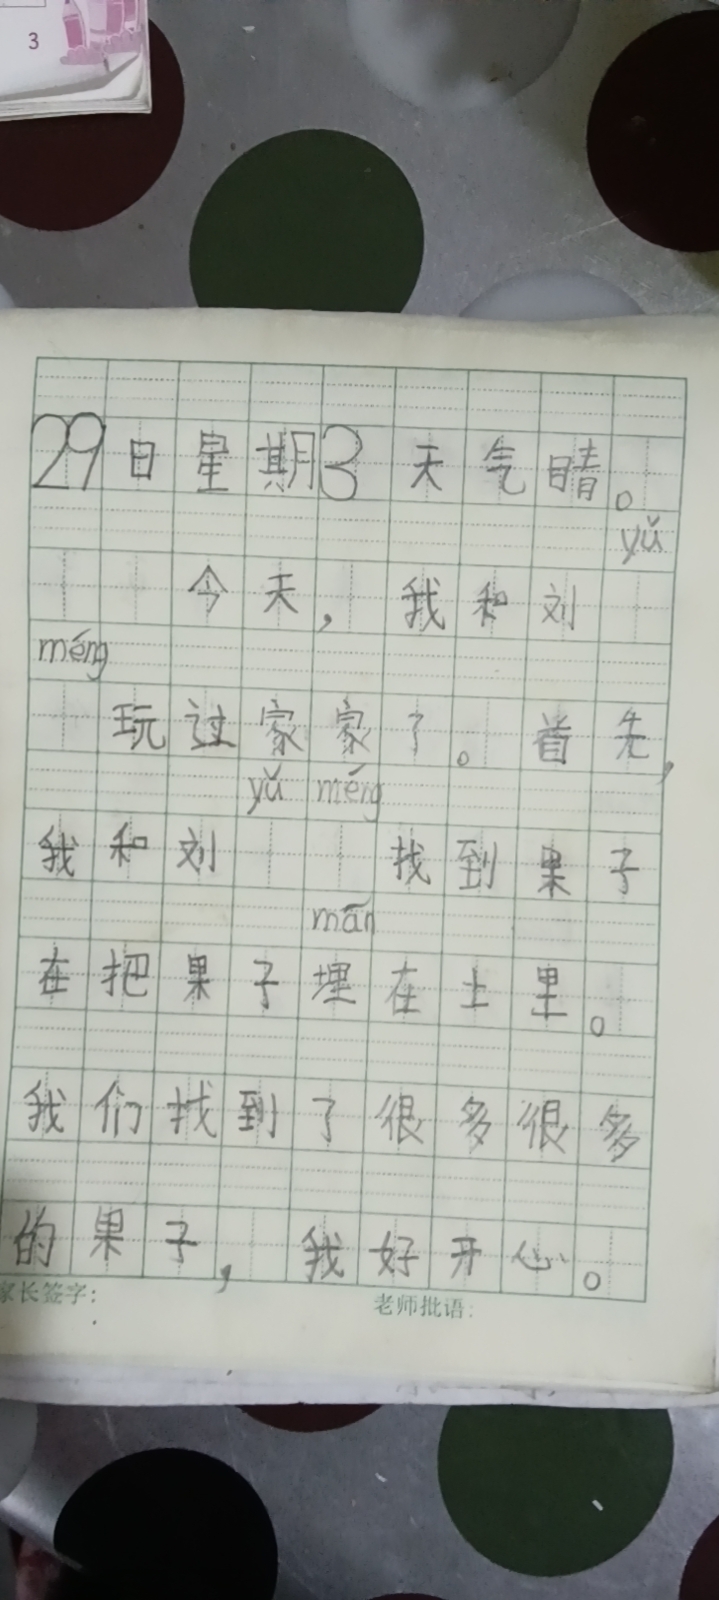 3
29日星期3天气睛。
yǔ
今天，我和刘
méng
玩过家家了。首先，
yǔ méng
我和刘 找到果子
mān
在把果子埋在土里。
我们找到了很多很多
的果子，我好开心。
家长签字： 老师批语：